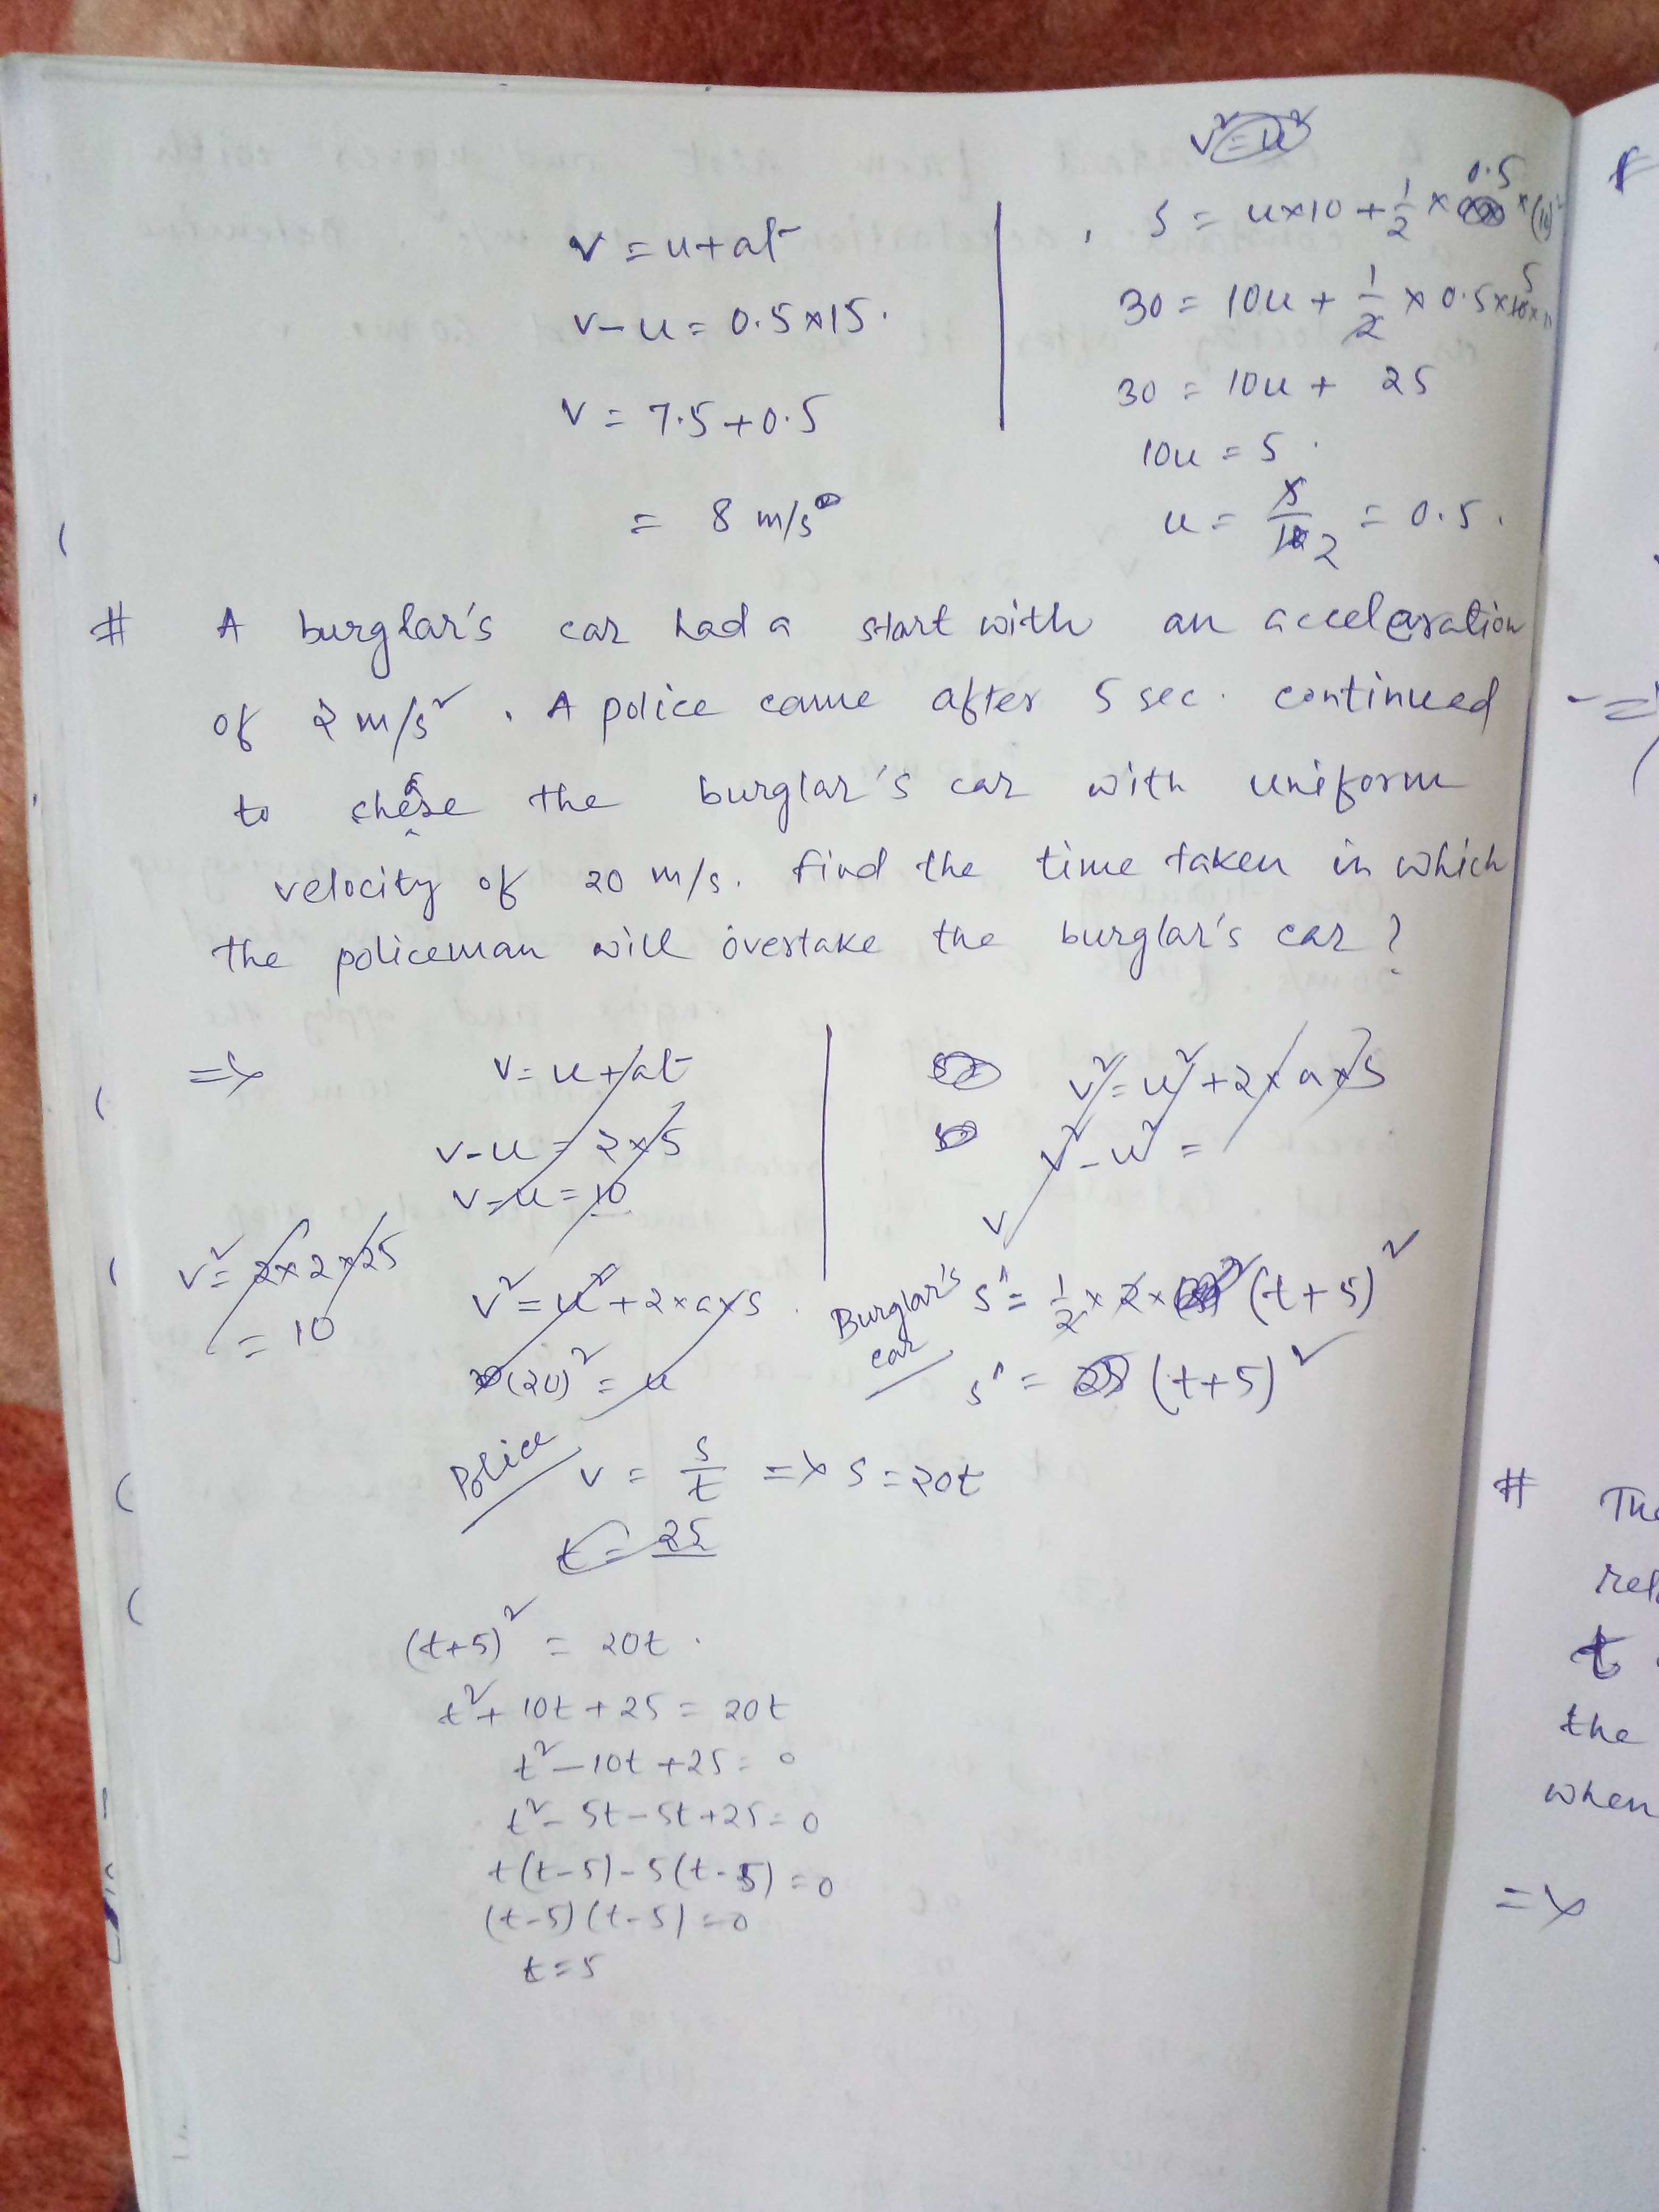 v² = u²
v = u + at
v - u = 0.5 × 15.
v = 7.5 + 0.5
= 8 m/s
s = u×10 + 1/2 × 0.5 × (10)²
30 = 10u + 1/2 × 0.5 × 10 ×
30 = 10u + 25
10u = 5.
u = 5/10 2 = 0.5.
# A burglar's car had a start with an acceleration
of 2 m/s². A police came after 5 sec. continued
to chase the burglar's car with uniform
velocity of 20 m/s. find the time taken in which
the policeman will overtake the burglar's car?
=> v = u + at
v - u = 2 × 5
v - u = 10
v² = u² + 2 × a × s
v² - u² =
v
v² = 2 × 2 × 25
= 10
v² = u² + 2 × a × s
(20)² = u
Burglar's car s^ = 1/2 × 2 × (t+5)²
s^ = (t+5)²
Police v = s/t => s = 20t
t = 25
(t+5)² = 20t.
t² + 10t + 25 = 20t
t² - 10t + 25 = 0
t² - 5t - 5t + 25 = 0
t(t-5) - 5(t-5) = 0
(t-5)(t-5) = 0
t = 5
#
t
the
when
=>